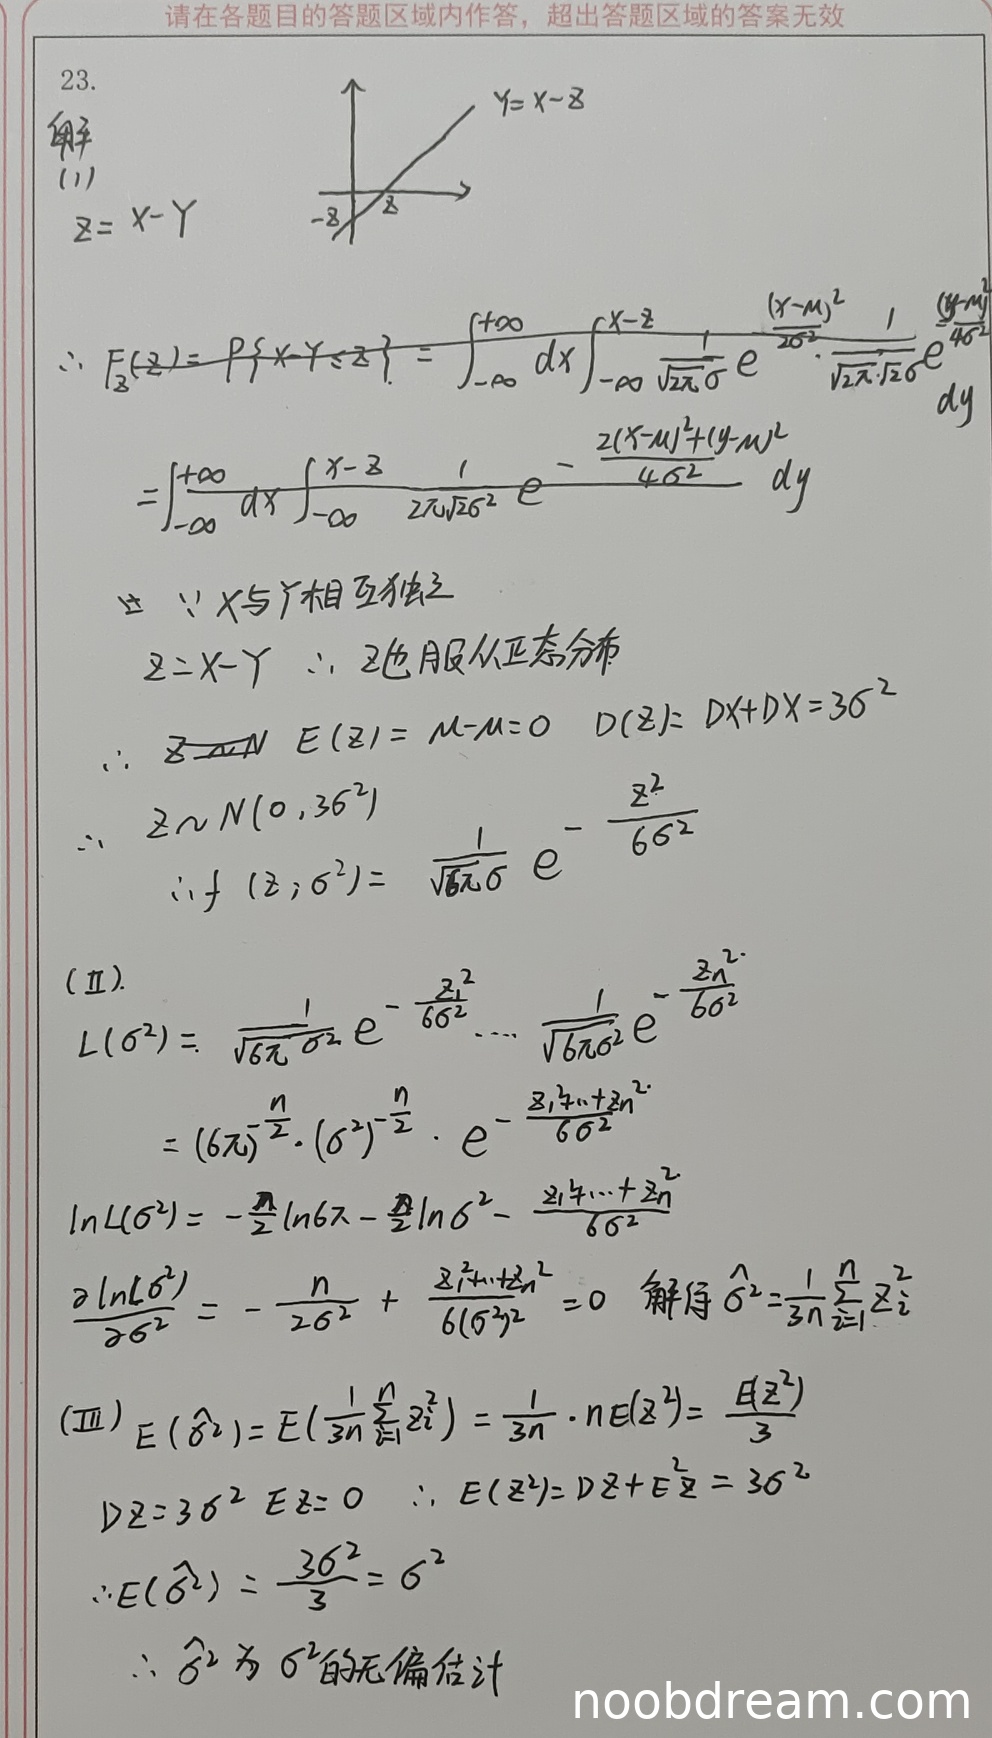 请在各题目的答题区域内作答，超出答题区域的答案无效
23.
解
(1)
Z = X-Y
Y = X-Z
-Z
Z
∴ F_Z(Z) = P{X-Y≤Z} = ∫_{-∞}^{+∞} dx ∫_{-∞}^{X-Z} 1/(√(2π)σ) e^{(x-μ)²/2σ²} · 1/(√(2π)·√2σ) e^{-(y-μ)²/4σ²} dy
= ∫_{-∞}^{+∞} dx ∫_{-∞}^{X-Z} 1/(2π√2σ²) e^{-(2(x-μ)²+(y-μ)²)/4σ²} dy
∵ X与Y相互独立
Z = X-Y ∴ Z也服从正态分布
∴ Z~N E(Z) = μ-μ = 0 D(Z) = DX+DX = 3σ²
∴ Z~N(0,3σ²)
∴ f(Z;σ²) = 1/(√(6π)σ) e^{-Z²/6σ²}
(II).
L(σ²) = 1/(√(6π)σ²) e^{-Z₁²/6σ²} ···· 1/√(6πσ²) e^{-Zn²/6σ²}
= (6π)^{-n/2} · (σ²)^{-n/2} · e^{-(Z₁²+...+Zn²)/6σ²}
lnL(σ²) = -n/2 ln6π - n/2 lnσ² - (Z₁²+...+Zn²)/6σ²
∂lnL(σ²)/∂σ² = -n/2σ² + (Z₁²+...+Zn²)/6(σ²)² = 0 解得 σ̂² = 1/3n Σ_{i=1}^{n} Z_i²
(III) E(σ̂²) = E(1/3n Σ_{i=1}^{n} Z_i²) = 1/3n · nE(Z²) = E(Z²)/3
DZ = 3σ² EZ = 0 ∴ E(Z²) = DZ+E²Z = 3σ²
∴ E(σ̂²) = 3σ²/3 = σ²
∴ σ̂² 为 σ²的无偏估计
noobdream.com